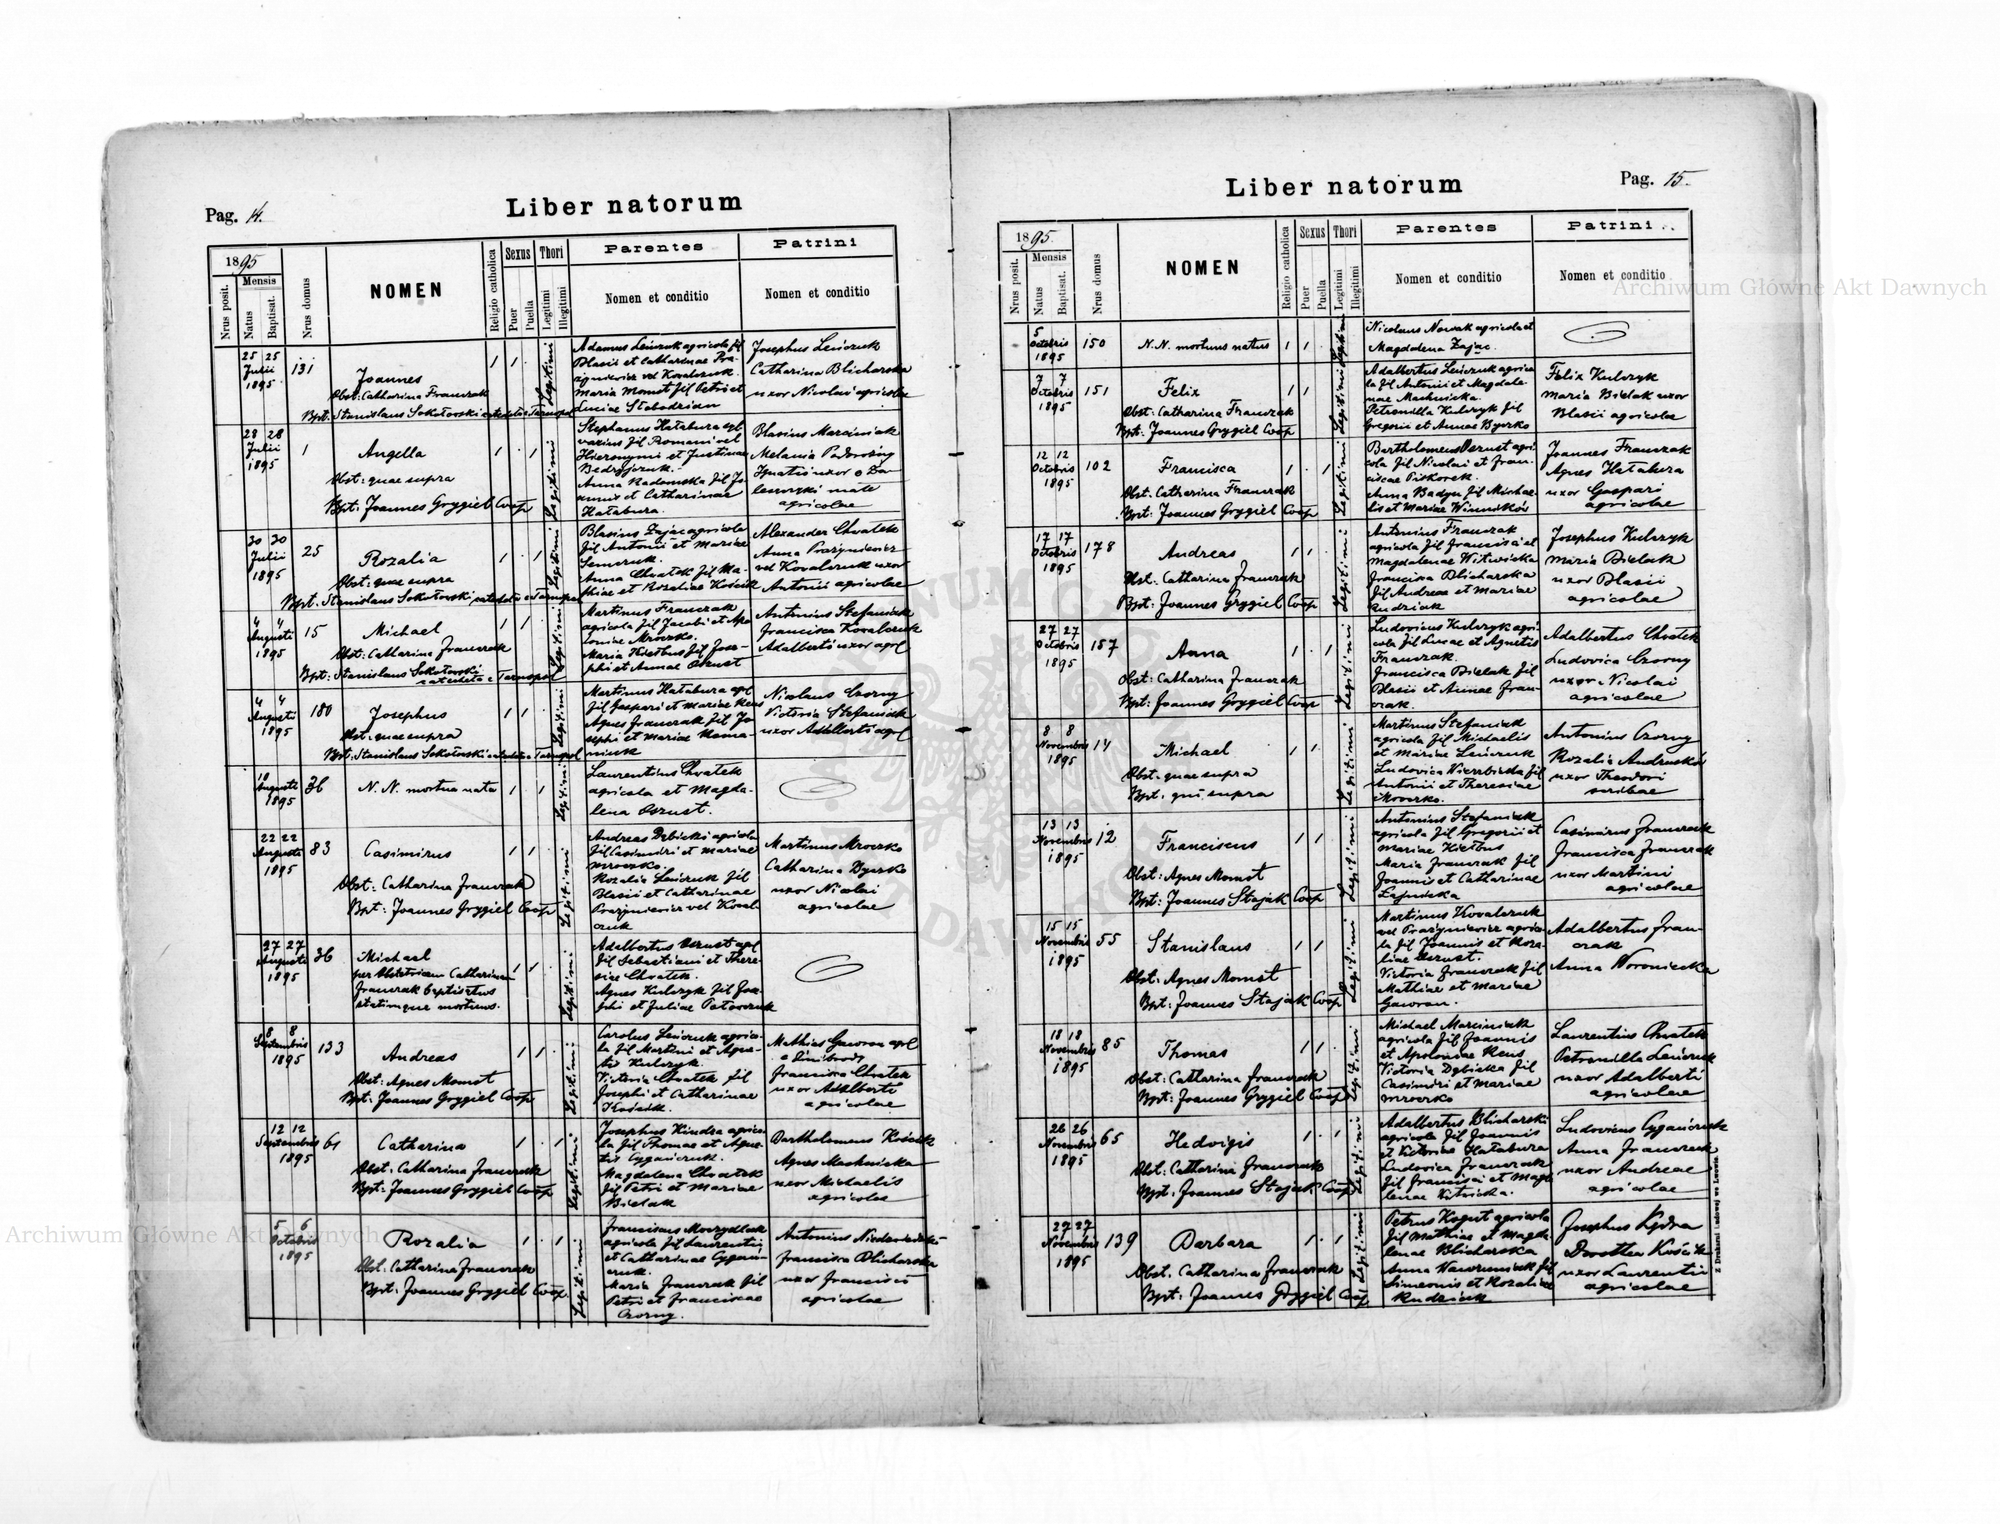 Pag. 14.
Liber natorum
1895
Nrus posit.
Mensis
Natus
Baptisat.
Nrus domus
NOMEN
Religio catholica
Sexus
Puer
Puella
Thori
Legitimi
Illegitimi
Parentes
Nomen et conditio
Patrini
Nomen et conditio
25 25
Julii
1895
131
Joannes
Obst: Catharina Franczak
Bpt: Stanislaus Sokołowski
1 1
Legitimi
Adamus Leńczuk agricola fil
Blasii et Catharinae
Maria Momot fil Petri et
Luciae
Josephus Leńczuk
Catharina Blicharska
uxor Nicolai agricolae
28 28
Julii
1895
1
Angella
Obst: quae supra
Bpt: Joannes Grygiel Coop
1 1
Legitimi
Stephanus Hałabura
fil Romani vel
Hieronymi et Justinae
Anna Radomska fil
et Catharinae
Hałabura.
Blasius Marciniak
Melania
agricolae
30 30
Julii
1895
25
Rozalia
Obst: quae supra
Bpt: Stanislaus Sokołowski
1 1
Legitimi
Blasius Zając agricola
fil Antonii et Mariae
Anna Chvatek fil
et Rozaliae Kościk
Alexander Chvatek
Anna Prazyniewicz
vel Kovalczuk uxor
Antonii agricolae
4 4
Augusti
1895
15
Michael
Obst: Catharina Franczak
Bpt: Stanislaus Sokołowski
1 1
Legitimi
Martinus Franczak
agricola fil Jacobi et
Mroczko.
Maria Kiełbus fil
et Annae Oszust
Antonius Stefaniak
Francisca Kovalczuk
Adalberti uxor agl
4 4
Augusti
1895
180
Josephus
Obst: quae supra
Bpt: Stanislaus Sokołowski
1 1
Legitimi
Martinus Hałabura agl
fil Gaspari et Mariae Reus
Agnes Franczak fil
et Mariae
Nicolaus Czorny
Victoria Stefaniak
uxor Adalberti agl
10
Augusti
1895
36
N. N. mortua nata
1 1
Legitimi
Laurentius Chvatek
agricola et Magda-
lena Oszust.
22 22
Augusti
1895
83
Casimirus
Obst: Catharina Franczak
Bpt: Joannes Grygiel Coop
1 1
Legitimi
Andreas Dębicki agricola
fil Casimiri et Mariae
Mroczko.
Rozalia Leńczuk fil
Blasii et Catharinae
Prazyniewicz vel Koval-
czuk
Martinus Mroczko
Catharina
uxor Nicolai
agricolae
27 27
Augusti
1895
36
Michael
per Obstetricem Catharinam
Franczak baptisatus
statimque mortuus.
1 1
Legitimi
Adalbertus Oszust agl
fil Sebastiani et There-
siae Chvatek.
Agnes Kulczyk fil Jose-
phi et Juliae
8 8
Septembris
1895
133
Andreas
Obst: Agnes Momot
Bpt: Joannes Grygiel Coop
1 1
Legitimi
Carolus Leńczuk agrico-
la fil Martini et Agne-
tis Kulczyk.
Victoria Chvatek fil
Josephi et Catharinae
Kościk.
Mathias Gawron agl
Francisca Chvatek
uxor Adalberti
agricolae
12 12
Septembris
1895
61
Catharina
Obst: Catharina Franczak
Bpt: Joannes Grygiel Coop
1 1
Legitimi
Josephus Kindra agrico-
la fil Thomae et Agne-
tis Cygańczuk.
Magdalena Chvatek
fil Petri et Mariae
Bielak
Bartholomeus Kościk
Agnes Machnicka
uxor Michaelis
agricolae
5 6
Octobris
1895
Rozalia
Obst: Catharina Franczak
Bpt: Joannes Grygiel Coop.
1 1
Legitimi
Franciscus Moczydlak
agricola fil Laurentii
et Catharinae Cygań-
czuk.
Maria Franczak fil
Petri et Franciscae
Czorny.
Antonius
Francisca Blicharska
uxor Francisci
agricolae
Pag. 15.
Liber natorum
1895.
Nrus posit.
Mensis
Natus
Baptisat.
Nrus domus
NOMEN
Religio catholica
Sexus
Puer
Puella
Thori
Legitimi
Illegitimi
Parentes
Nomen et conditio
Patrini
Nomen et conditio
5
Octobris
1895
150
N. N. mortuus natus
1 1
Legitimi
Nicolaus Nowak agricola et
Magdalena Zając.
7 7
Octobris
1895
151
Felix
Obst: Catharina Franczak
Bpt: Joannes Grygiel Coop
1 1
Legitimi
Adalbertus Leńczuk agrico-
la fil Antonii et Magdale-
nae Machnicka.
Petronella Kulczyk fil
Gregorii et Annae Byczko
Felix Kulczyk
Maria Bielak uxor
Blasii agricolae
12 12
Octobris
1895
102
Francisca
Obst: Catharina Franczak
Bpt: Joannes Grygiel Coop
1 1
Legitimi
Bartholomeus Oszust agri-
cola fil Nicolai et Fran-
ciscae Piskorek.
Anna Badyn fil Michae-
lis et Mariae
Joannes Franczak
Agnes Hałabura
uxor Gaspari
agricolae
17 17
Octobris
1895
178
Andreas
Obst: Catharina Franczak
Bpt: Joannes Grygiel Coop
1 1
Legitimi
Antonius Franczak
agricola fil Francisci et
Magdalenae Witwicka
Francisca Blicharska
fil Andreae et Mariae
Rudziak
Josephus Kulczyk
Maria Bielak
uxor Blasii
agricolae
27 27
Octobris
1895
157
Anna
Obst: Catharina Franczak
Bpt: Joannes Grygiel Coop
1 1
Legitimi
Ludovicus Kulczyk agri-
cola fil Lucae et Agnetis
Franczak.
Francisca Bielak fil
Blasii et Annae Fran-
czak.
Adalbertus Chvatek
Ludovica Czorny
uxor Nicolai
agricolae
8 8
Novembris
1895
14
Michael
Obst: quae supra
Bpt. qui supra
1 1
Legitimi
Martinus Stefaniak
agricola fil Michaelis
et Mariae Leńczuk
Ludovica Wierzbicka fil
Antonii et Theresiae
Mroczko.
Antonius Czorny
Rozalia
uxor Theodori
scribae
13 13
Novembris
1895
12
Franciscus
Obst: Agnes Momot
Bpt: Joannes Stojak Coop
1 1
Legitimi
Antonius Stefaniak
agricola fil Gregorii et
Mariae Kiełbus
Maria Franczak fil
Joannis et Catharinae
Casimirus Franczak
Francisca Franczak
uxor Martini
agricolae
15 15
Novembris
1895
55
Stanislaus
Obst: Agnes Momot
Bpt: Joannes Stojak Coop
1 1
Legitimi
Martinus Kovalczuk
vel Prazyniewicz agrico-
la fil Joannis et Roza-
liae Oszust.
Victoria Franczak fil
Mathiae et Mariae
Gawron.
Adalbertus Fran-
czak
Anna Woroniecka
18 18
Novembris
1895
85
Thomas
Obst: Catharina Franczak
Bpt: Joannes Grygiel Coop
1 1
Legitimi
Michael Marciniak
agricola fil Joannis
et Apoloniae Reus
Victoria Dębicka fil
Casimiri et Mariae
Mroczko
Laurentius Chvatek
Petronella Leńczuk
uxor Adalberti
agricolae
26 26
Novembris
1895
65
Hedvigis
Obst: Catharina Franczak
Bpt: Joannes Stojak Coop
1 1
Legitimi
Adalbertus Blicharski
agricola fil Joannis
et Victoriae Hałabura
Ludovica Franczak
fil Francisci et Magda-
lenae Witwicka.
Ludovicus Cygańczuk
Anna Franczak
uxor Andreae
agricolae
27 27
Novembris
1895
139
Barbara
Obst. Catharina Franczak
Bpt: Joannes Grygiel Coop
1 1
Legitimi
Petrus Kogut agricola
fil Mathiae et Magda-
lenae Blicharska
Anna Wawryniak fil
Simeonis et Rozaliae
Rudziak
Josephus Kędra
Dorothea Kościk
uxor Laurentii
agricolae
Z Drukarni Ludowej we Lwowie.
Archiwum Główne Akt Dawnych
Archiwum Główne Akt Dawnych